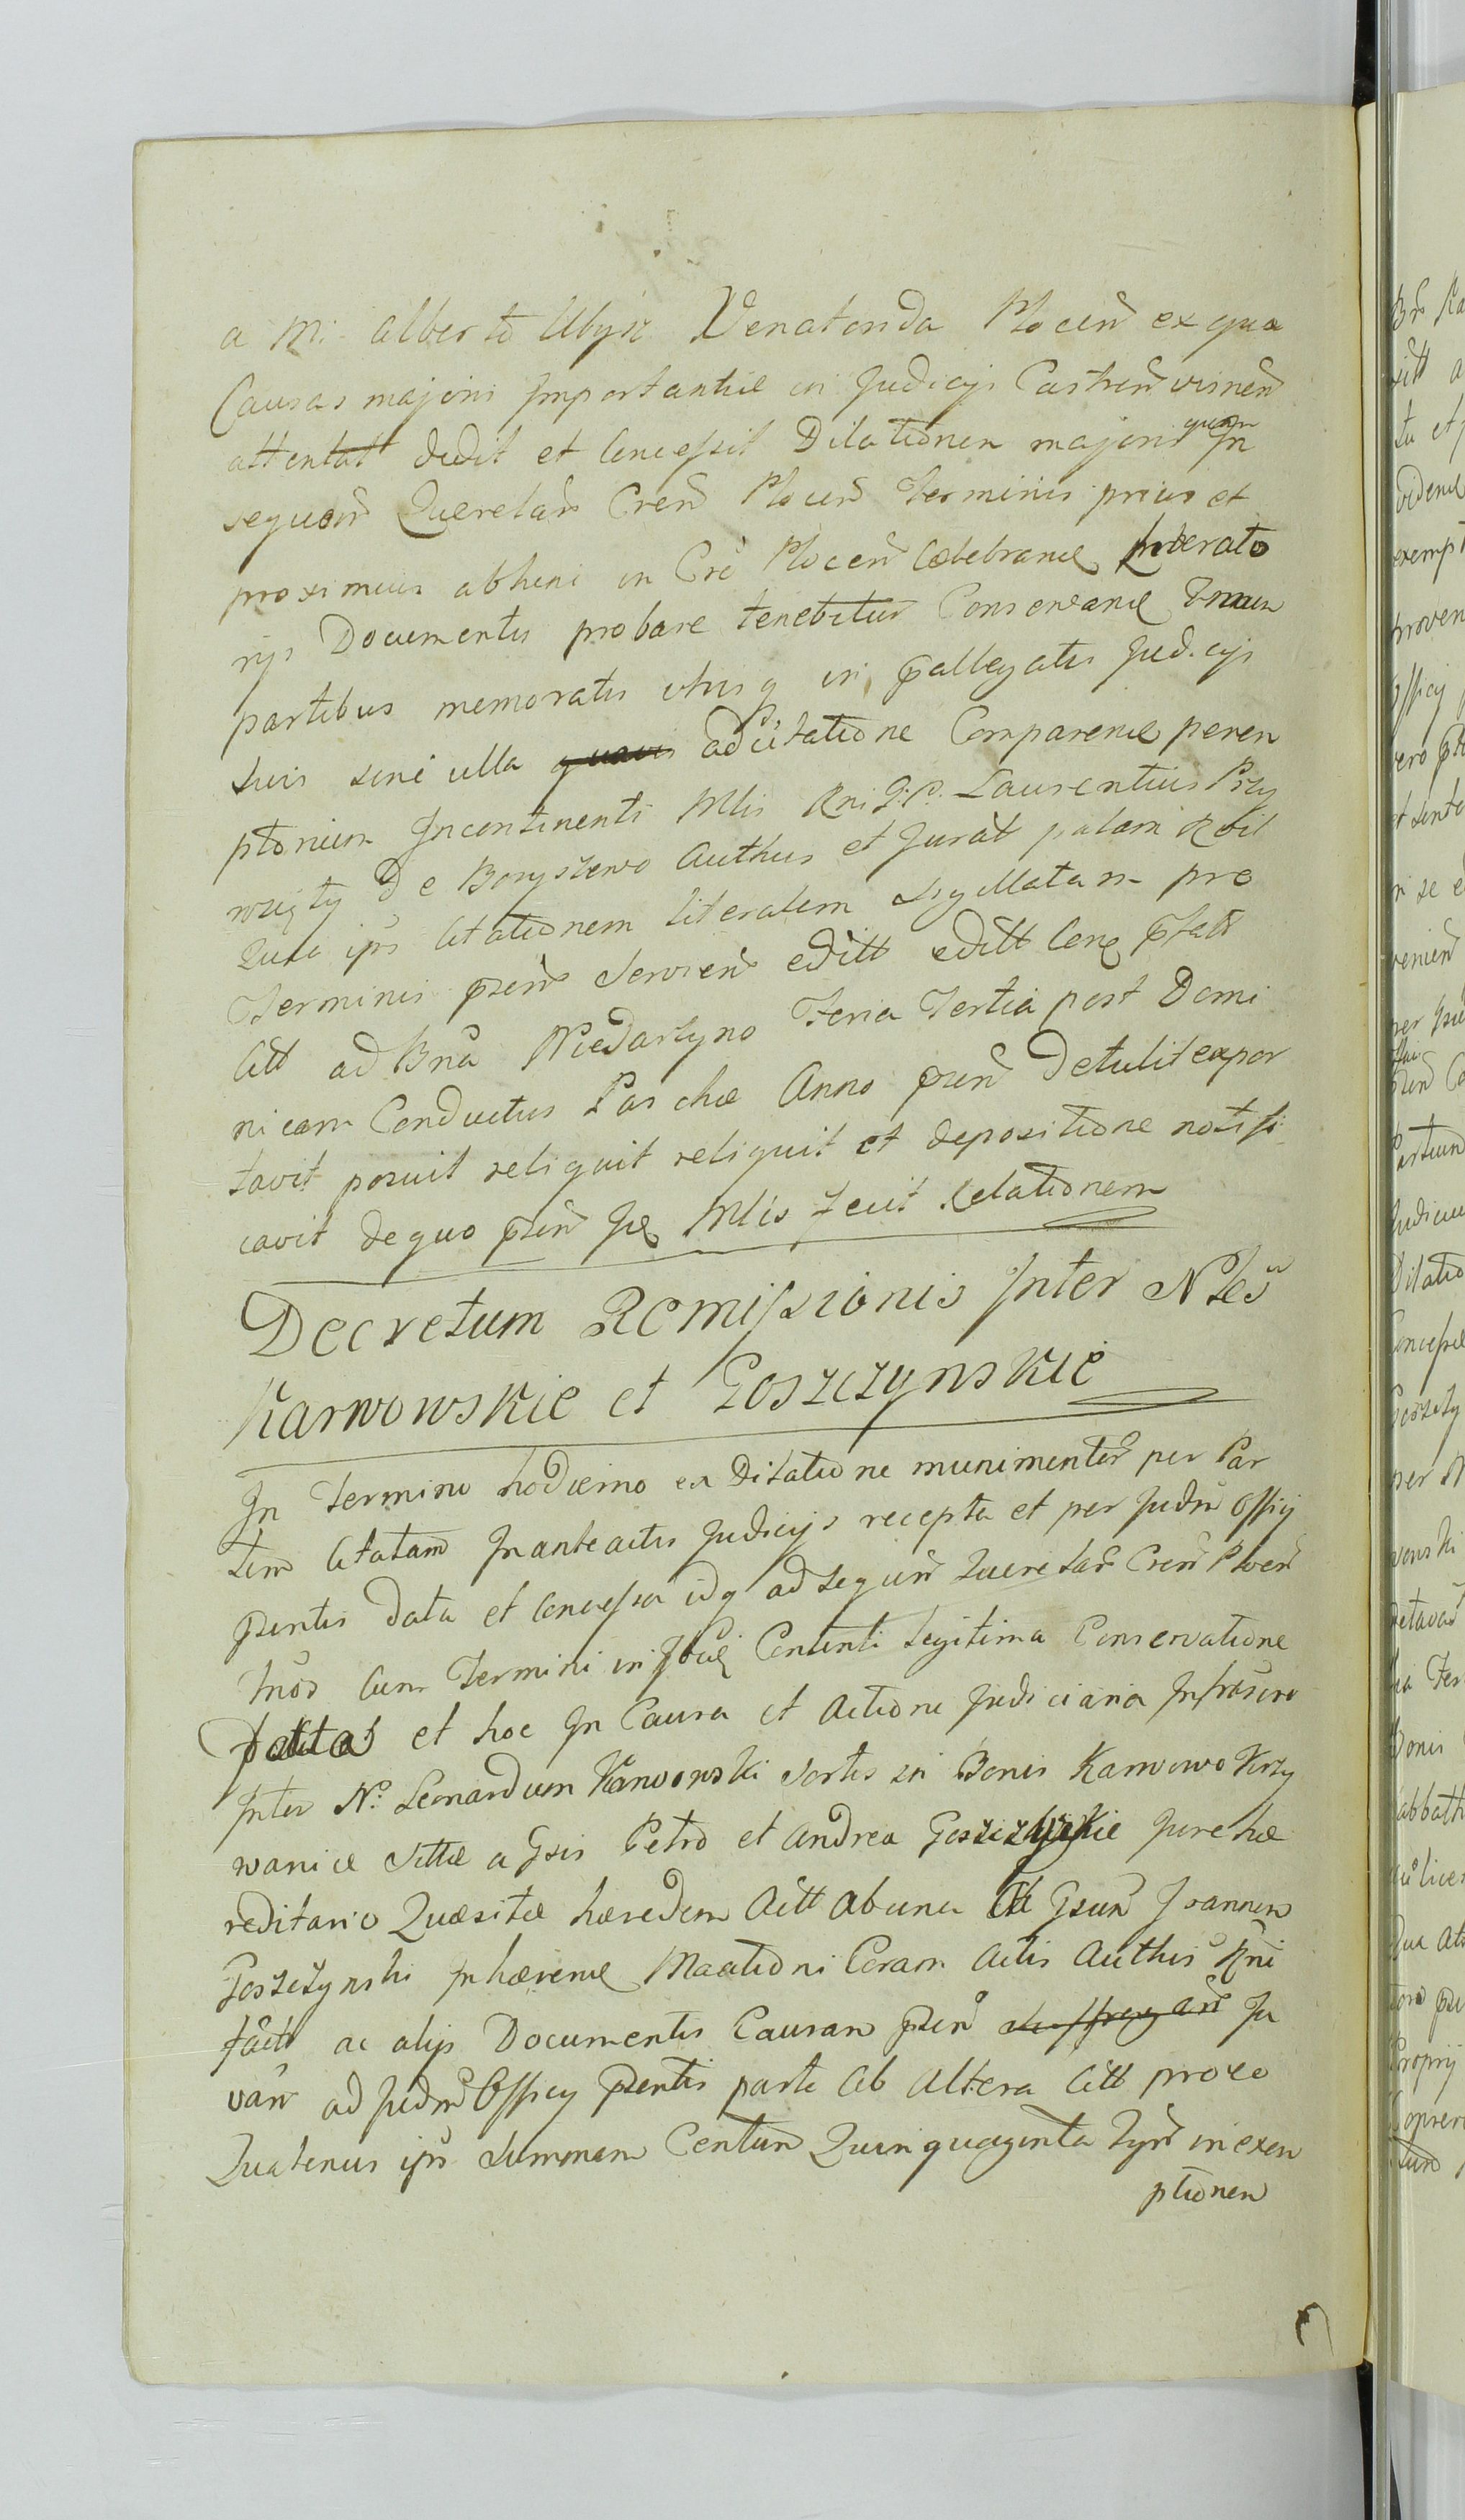 a M: Alberto Ubysz Venatorida Plocen ex qua
Causas majoris Importantiæ in Judicijs Castren visnen
attentatt dedit et Concessit Dilationem majoris quam In
sequen Querelar Cren Plocen Terminis prius et
proximius abheni in Cre Plocen Cælebrand Litterato
rijs Documentis probare tenebitur Conservand Tnnum
partibus memoratis utrisq in pallegatis Judicijs
suis sine ulla adcitatione Comparend peren
ptorium Incontinenti Mlis Rni J:P. Laurentius Przy
wzięty De Boryszewo Authus et Jurat palam Rbil
Quia ips Citationem literalem Sigyllatam pro
Terminis psen Servien editt editt Cerq pstatt
Citt ad Bna Niedarzyno Feria Tertia post Domi
nicam Conductus Paschæ Anno psen Detulit expor
tavit posuit reliquit reliquit et depositione notifi
cavit de quo psen Jq Mlis fecit Relationem
Decretum Remissionis Inter Nles
Karwowskie et Goszczynskie
In Termino hodierno ex Dilatione munimentor per Par
tem Citatam Inanteactis Judicijs recepta et per Judm Officij
psentis Data et Concessa idq ad Sequen Querelar Cren Plocen
Tnos Cum Termini in Contenti Legitima Conservatione
et hoc In Causa et Actione Judiciaria Infrascro
Inter N: Leonardum Karwowski sortis in Bonis Karwowo Krzy
wanice Sittæ a Gsis Petro et Andrea Goszczynskie Jure hæ
reditario Quæsitæ hæredem Actt ab una et Gsum Joannem
Goszczynski Inhærend Maationi Coram Actis Authis Rni
factt ac alijs Documentis Causam psen suffragan Ju
van ad Judm Officij psentis parte ab altera Citt proeo
Quatenus ips Summam Centum Quinquaginta Tynf in exem
ptionem